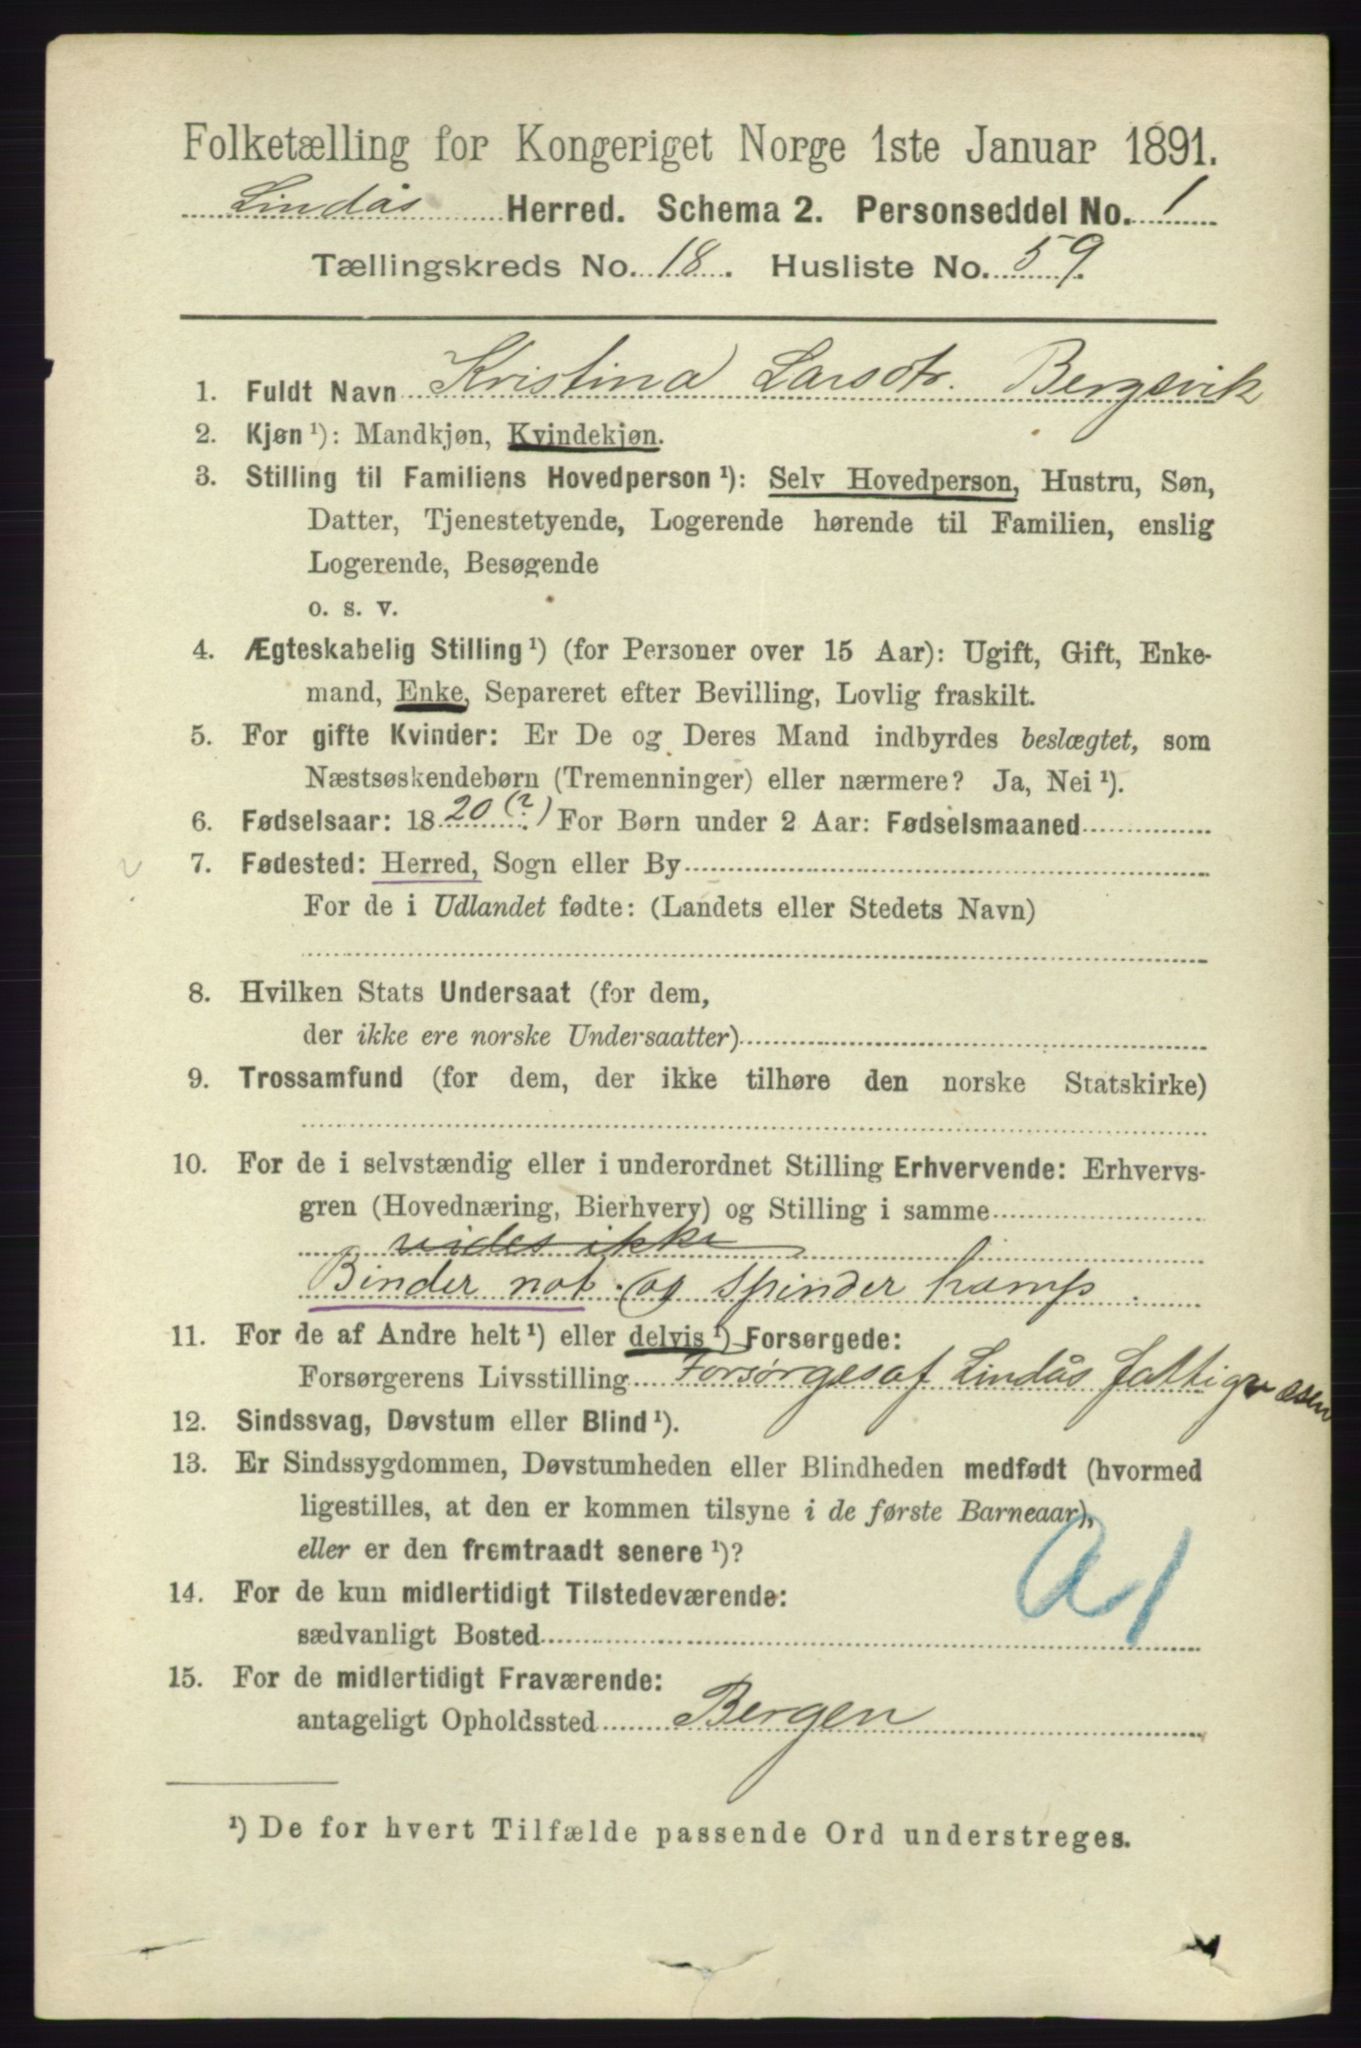 Folketælling for Kongeriget Norge 1ste Januar 1891.
Lindås Herred. Schema 2. Personseddel No. 1
Tællingskreds No. 18. Husliste No. 59.
1. Fuldt Navn Kristina Larsdtr. Bergsvik
2. Kjøn ¹): Mandkjøn, Kvindekjøn.
3. Stilling til Familiens Hovedperson ¹): Selv Hovedperson, Hustru, Søn,
Datter, Tjenestetyende, Logerende hørende til Familien, enslig
Logerende, Besøgende
o. s. v.
4. Ægteskabelig Stilling ¹) (for Personer over 15 Aar): Ugift, Gift, Enke-
mand, Enke, Separeret efter Bevilling, Lovlig fraskilt.
5. For gifte Kvinder: Er De og Deres Mand indbyrdes beslægtet, som
Næstsøskendebørn (Tremenninger) eller nærmere? Ja, Nei ¹).
6. Fødselsaar: 1820 (?) For Børn under 2 Aar: Fødselsmaaned
7. Fødested: Herred, Sogn eller By
For de i Udlandet fødte: (Landets eller Stedets Navn)
8. Hvilken Stats Undersaat (for dem,
der ikke ere norske Undersaatter)
9. Trossamfund (for dem, der ikke tilhøre den norske Statskirke)
10. For de i selvstændig eller i underordnet Stilling Erhvervende: Erhvervs-
gren (Hovednæring, Bierhverv) og Stilling i samme
vides ikke
Binder not og spinder hamp.
11. For de af Andre helt ¹) eller delvis ¹) Forsørgede:
Forsørgerens Livsstilling Forsørges af Lindås fattigvæsen
12. Sindssvag, Døvstum eller Blind ¹).
13. Er Sindssygdommen, Døvstumheden eller Blindheden medfødt (hvormed
ligestilles, at den er kommen tilsyne i de første Barneaar),
eller er den fremtraadt senere ¹)?
a1
14. For de kun midlertidigt Tilstedeværende:
sædvanligt Bosted
15. For de midlertidigt Fraværende:
antageligt Opholdssted Bergen
¹) De for hvert Tilfælde passende Ord understreges.